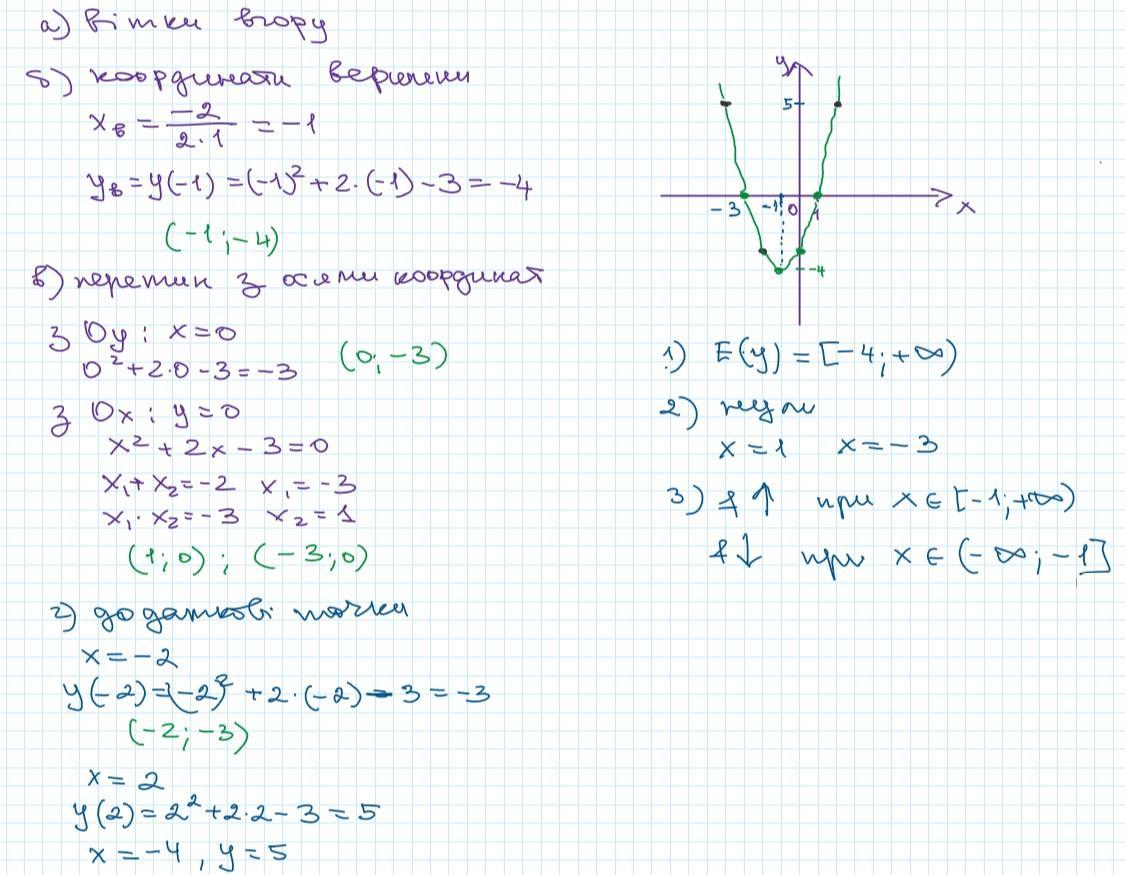 а) вітки вгору
б) координати вершини
xв = -2 / 2·1 = -1
yв = y(-1) = (-1)² + 2·(-1) - 3 = -4
(-1; -4)
в) перетин з осями координат
з Oy: x = 0
0² + 2·0 - 3 = -3 (0; -3)
з Ox: y = 0
x² + 2x - 3 = 0
x₁ + x₂ = -2 x₁ = -3
x₁ · x₂ = -3 x₂ = 1
(1; 0) ; (-3; 0)
г) додаткові точки
x = -2
y(-2) = (-2)² + 2·(-2) - 3 = -3
(-2; -3)
x = 2
y(2) = 2² + 2·2 - 3 = 5
x = -4, y = 5
y
5
-3 -1 0 1 x
-4
1) E(y) = [-4; +∞)
2) нулі
x = 1 x = -3
3) f↑ при x ∈ [-1; +∞)
f↓ при x ∈ (-∞; -1]